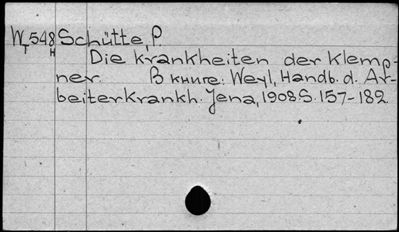 W 548 Schütte, P.
T H
Die Krankheiten der Klemp-
ner. В книге: Weyl, Handb. d. Ar-
beiterkrankh. Jena, 1908 S. 157-182